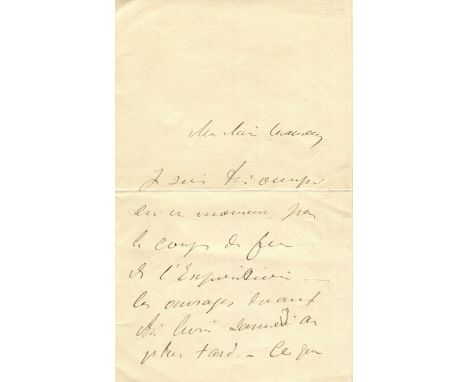 Mon cher
Je suis très occupé
en ce moment, par
le coup de feu
de l'Exposition —
les ouvrages devant
être livrés samedi au
plus tard. — Ce que